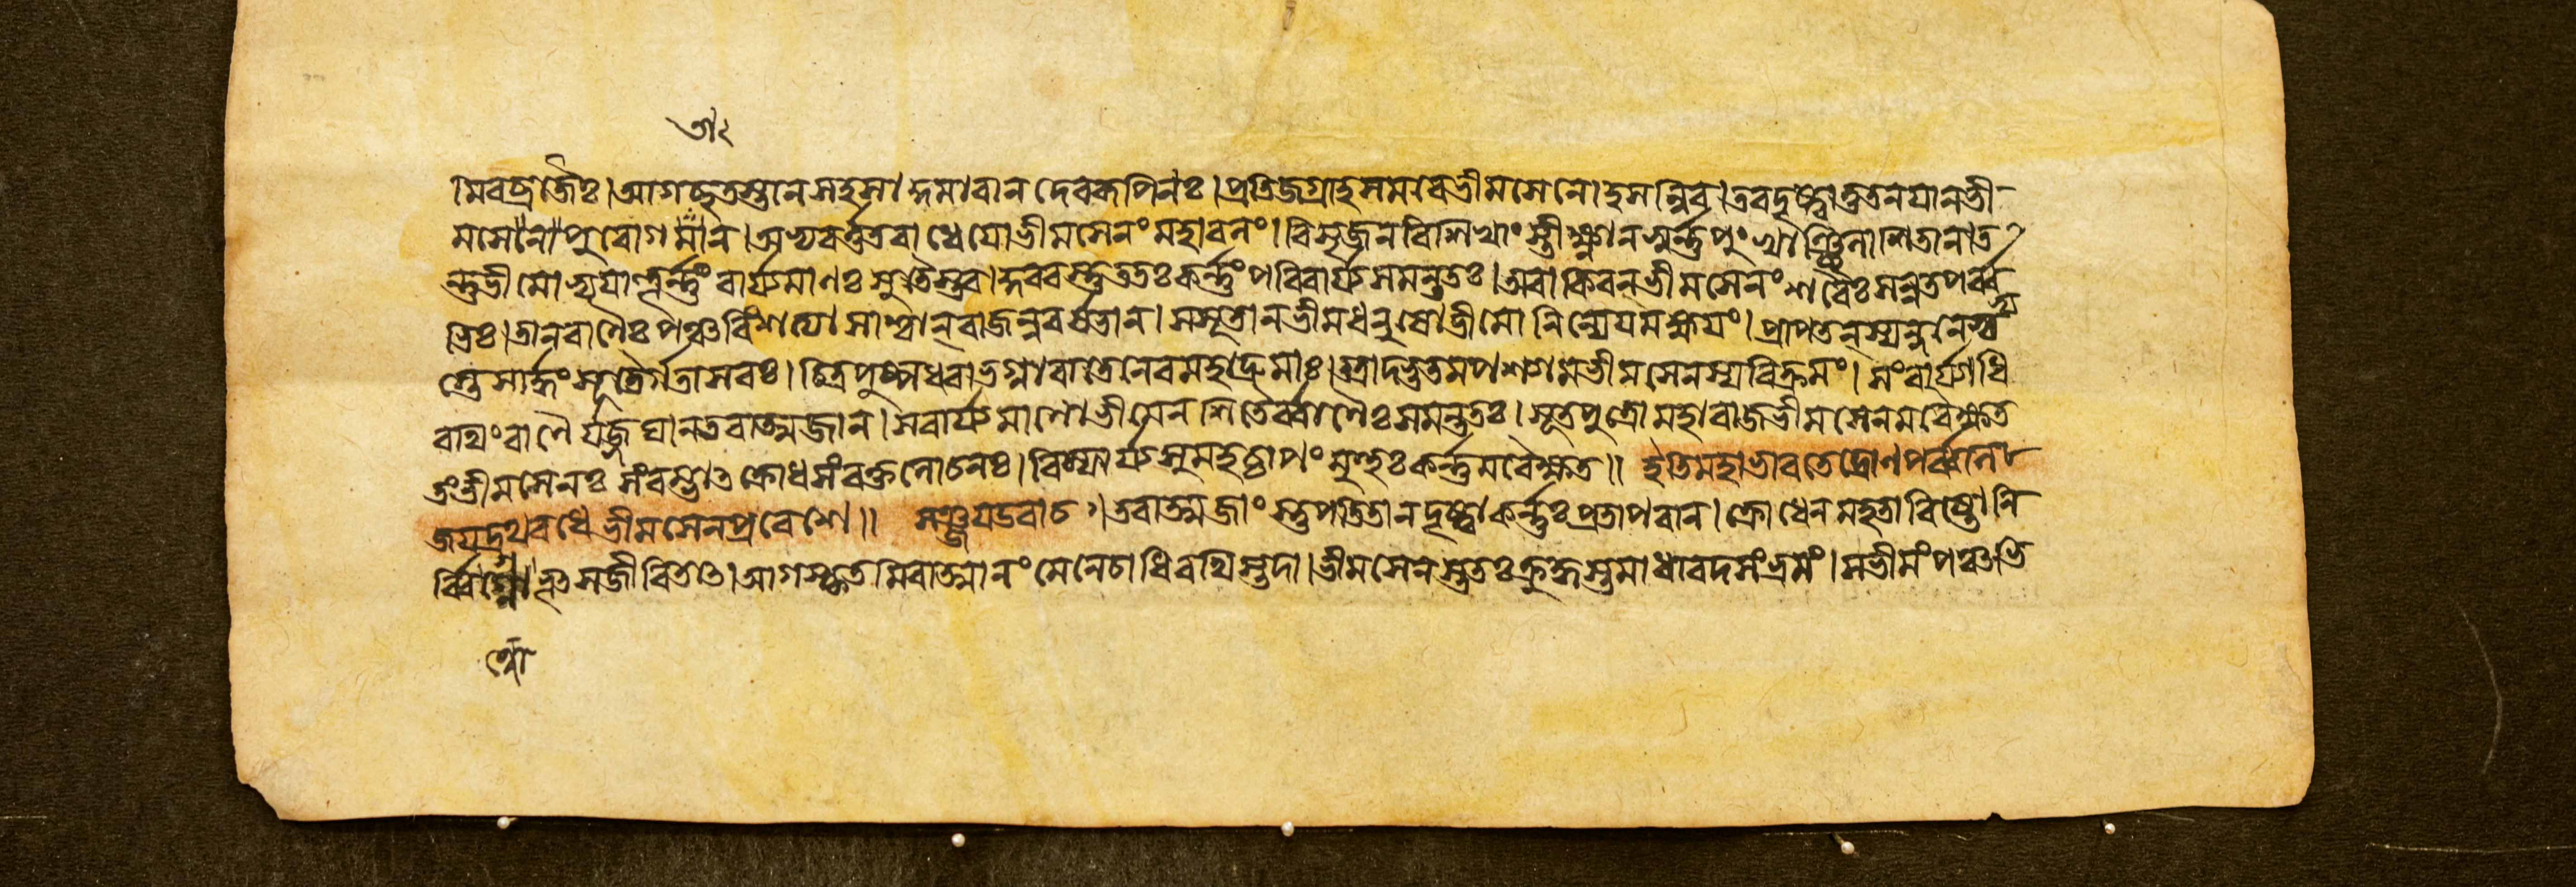 আগচ্ছতস্তান্সহসাকুমারান্দেবরূপিনঃ।প্রতিজগ্রাহসমরেভীমসেনোহসন্নিব।তবদৃষ্ট্বাতুতনয়ান্ভী
মসেনপুরোগমান্।অভ্যবর্ত্ততরাধেয়োভীমসেনংমহাবলং।বিসৃজন্বিশিখাংস্তীক্ষ্ণান্স্বর্ণ্ণপুংখাঞ্ছিলাশিতান্ত
ন্তুভীমোভ্যয়াত্তূর্ণ্ণংবার্য্যমাণঃসুতৈস্তব।কুরবস্তুততঃকর্ণ্ণংপরিবার্য্যসমন্ততঃ।অবাকিরন্ভীমসেনংশরৈঃসন্নতপর্ব্ব
ভিঃ।তান্বাণৈঃপঞ্চবিংশত্যাসাশ্বান্রাজন্নরর্ষভান্।সসূতান্ভীমধনুষোভীমোনিন্যেযমক্ষয়ং।প্রাপতন্স্যন্দনেভ্য
স্তেসার্দ্ধংসূতৈর্গতাসবঃ।চিত্রপুষ্পধরাভগ্নাবাতেনেবমহাদ্রুমাঃ।তত্রাদ্ভুতমপশ্যামভীমসেনস্যবিক্রমং।সংবার্য্যাধি
রথিংবাণৈর্যজ্জঘানতবাত্মজান্।সবার্য্যমাণোভীমেনশিতৈর্ব্বাণৈঃসমন্ততঃ।সূতপুত্রোমহারাজভীমসেনমবৈক্ষত
তংভীমসেনঃসংরম্ভাৎক্রোধসংরক্তলোচনঃ।বিস্ফার্য্যসুমহচ্চাপংমুহুঃকর্ণ্ণমবৈক্ষত॥ ইতিমহাভারতেদ্রোণপর্ব্বণি
জয়দ্রথবধেভীমসেনপ্রবেশে॥ সঞ্জয়উবাচ।তবাত্মজাংস্তুপতিতান্দৃষ্ট্বাকর্ণ্ণঃপ্রতাপবান্।ক্রোধেনমহতাবিষ্টোনি
র্ব্বিণ্ণোভূৎসজীবিতাৎ।আগস্কৃতমিবাত্মানংমেনেচাধিরথিস্তদা।ভীমসেনস্ততঃক্রুদ্ধস্তমাধাবদসংভ্রমং।সভীমংপঞ্চভি